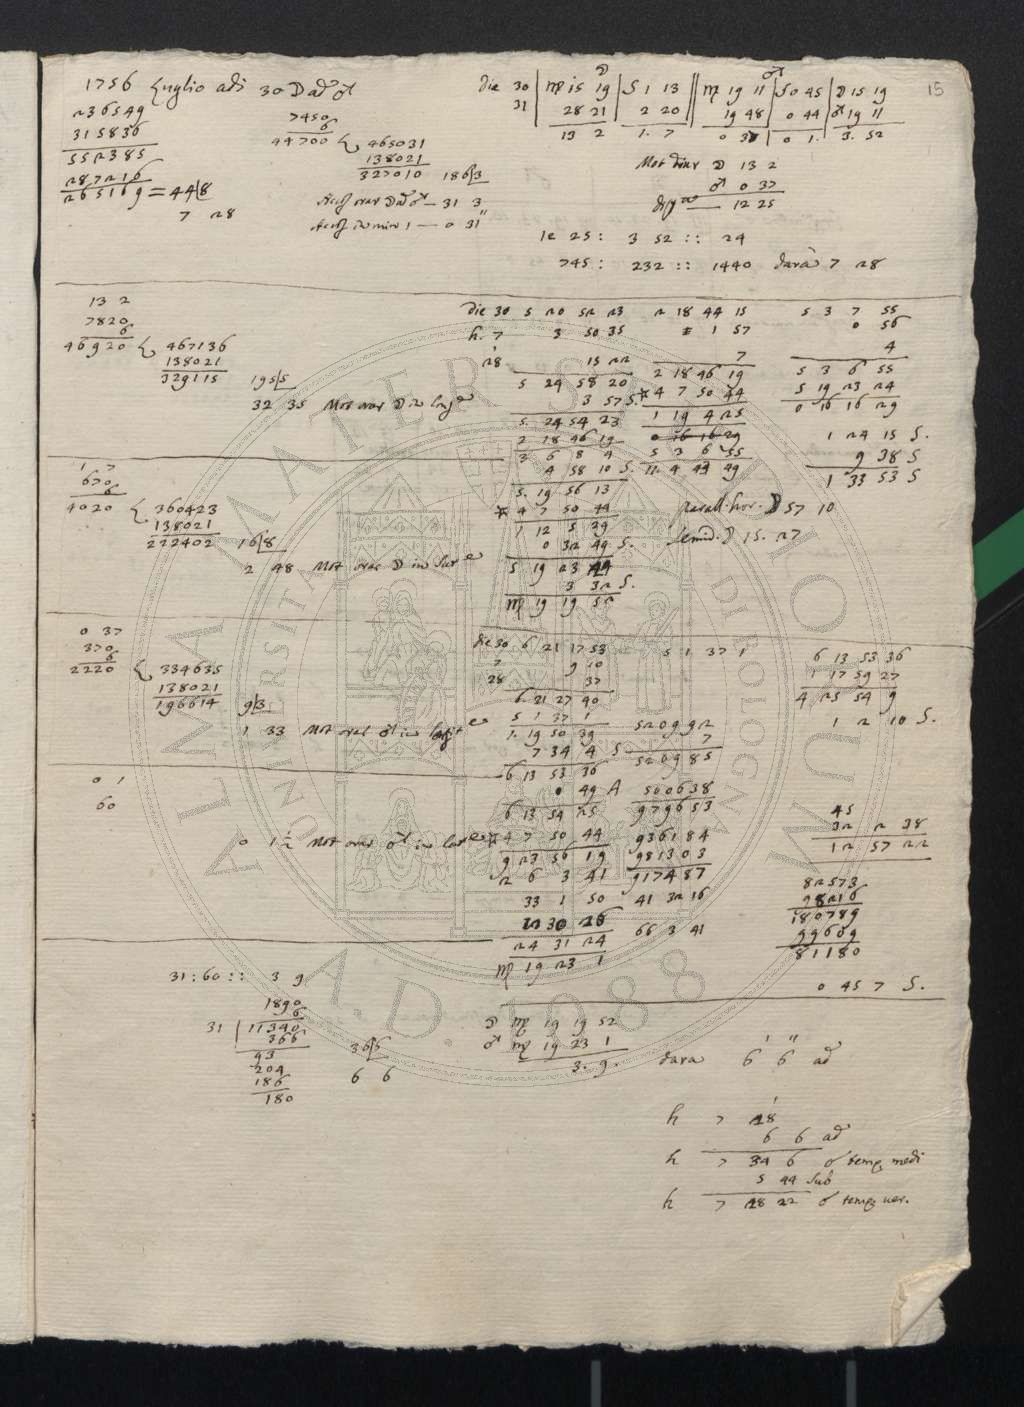 15
1756 Luglio adi 30 ☽ ad ♂
236549
315836
552385
287216
265169 = 44|8
7 28
7450
6
44700
465031
138021
327010 186|3
☽ ad ♂ — 31 3
— 0 31"
☽ ♂
die 30 | ♍ 15 19 | S 1 13 || ♍ 19 11 | S 0 45 | ☽ 15 19
31 | 28 21 | 2 20 || 19 48 | 0 44 | ♂ 19 11
13 2 | 1. 7 || 0 37 | 0 1. | 3. 52
Mot diur ☽ 13 2
♂ 0 37
12 25
12 25 : 3 52 :: 24
745 : 232 :: 1440 darà 7 28
13 2
7820
6
46920
467136
138021
329115 195|5
32 35 Mot orar ☽ in long.e
die 30 5 20 52 23
h. 7 3 50 35
28 15 22
5 24 58 20
3 57 S.
5. 24 54 23
2 18 46 19
3 6 8 4
4 58 10 S.
5. 19 56 13
* 4 7 50 44
1 12 5 29
0 32 49 S.
5 19 23 24
3 32 S.
♍ 19 19 52
2 18 44 15
1 57
7
2 18 46 19
* 4 7 50 44
1 19 4 25
0 16 16 29
5 3 6 55
11. 4 49 49
5 3 7 55
0 56
4
5 3 6 55
5 19 23 24
0 16 16 29
1 24 15 S.
9 38 S
1 33 53 S
Parall. hor. ☽ 57 10
Semid. ☽ 15. 27
1 7
670
6
4020
360423
138021
222402 16|8
2 48 Mot orar ☽ in lat.e
0 37
370
6
2220
334635
138021
196614 9|3
1 33 Mot orar ♂ in long.e
0 1
60
0 1½ Mot orar ♂ in lat.e
die 30 6 21 17 53
7 9 10
28 37
6 21 27 40
5 1 37 1
1. 19 50 39
7 34 4 S
6 13 53 36
0 49 A
6 13 54 25
* 4 7 50 44
9 23 56 19
2 6 3 41
33 1 50
24 31 24
♍ 19 23 1
5 1 37 1
520992
7
520985
560638
979653
936184
981303
917487
41 32 16
66 3 41
6 13 53 36
1 17 59 27
4 25 54 9
1 2 10 S.
45
32 2 38
12 57 22
82573
98216
180789
99609
81180
0 45 7 S.
31 : 60 :: 3 9
1890
6
31 | 11340
366 36|5
93
204
186 6 6
180
☽ ♍ 19 19 52
♂ ♍ 19 23 1
3. 9. dara 6' 6" ad
h 7 28'
6 6 ad
h 7 34 6 ☌ temp. medi
5 44 sub
h 7 28 22 ☌ temp. ver.
ALMA MATER STUDIORUM
UNIVERSITÀ DI BOLOGNA
A.D. 1088